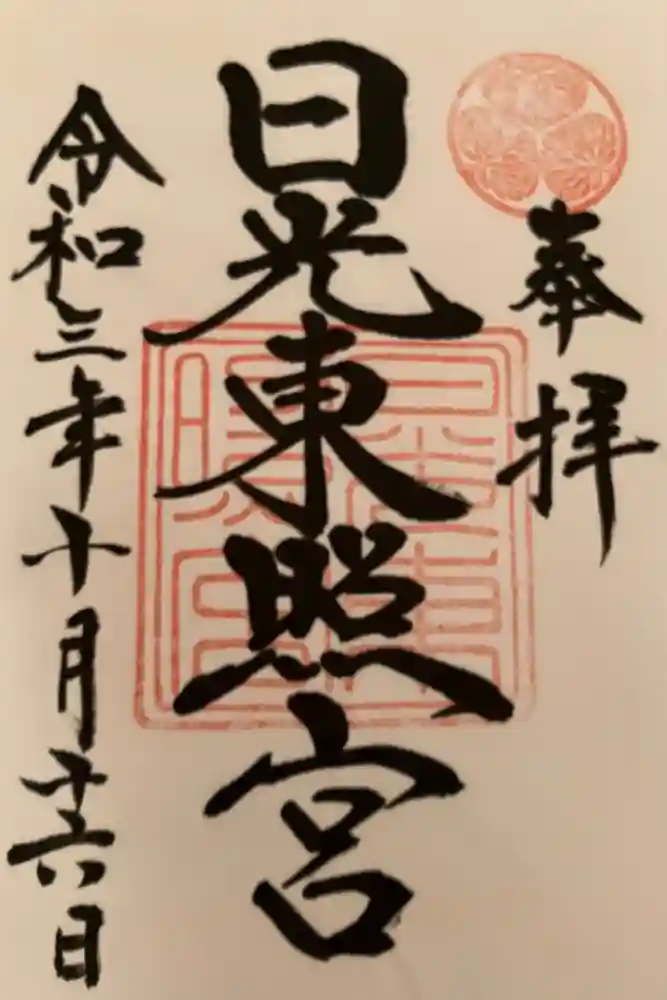 奉拝
日光東照宮
令和三年十月十六日